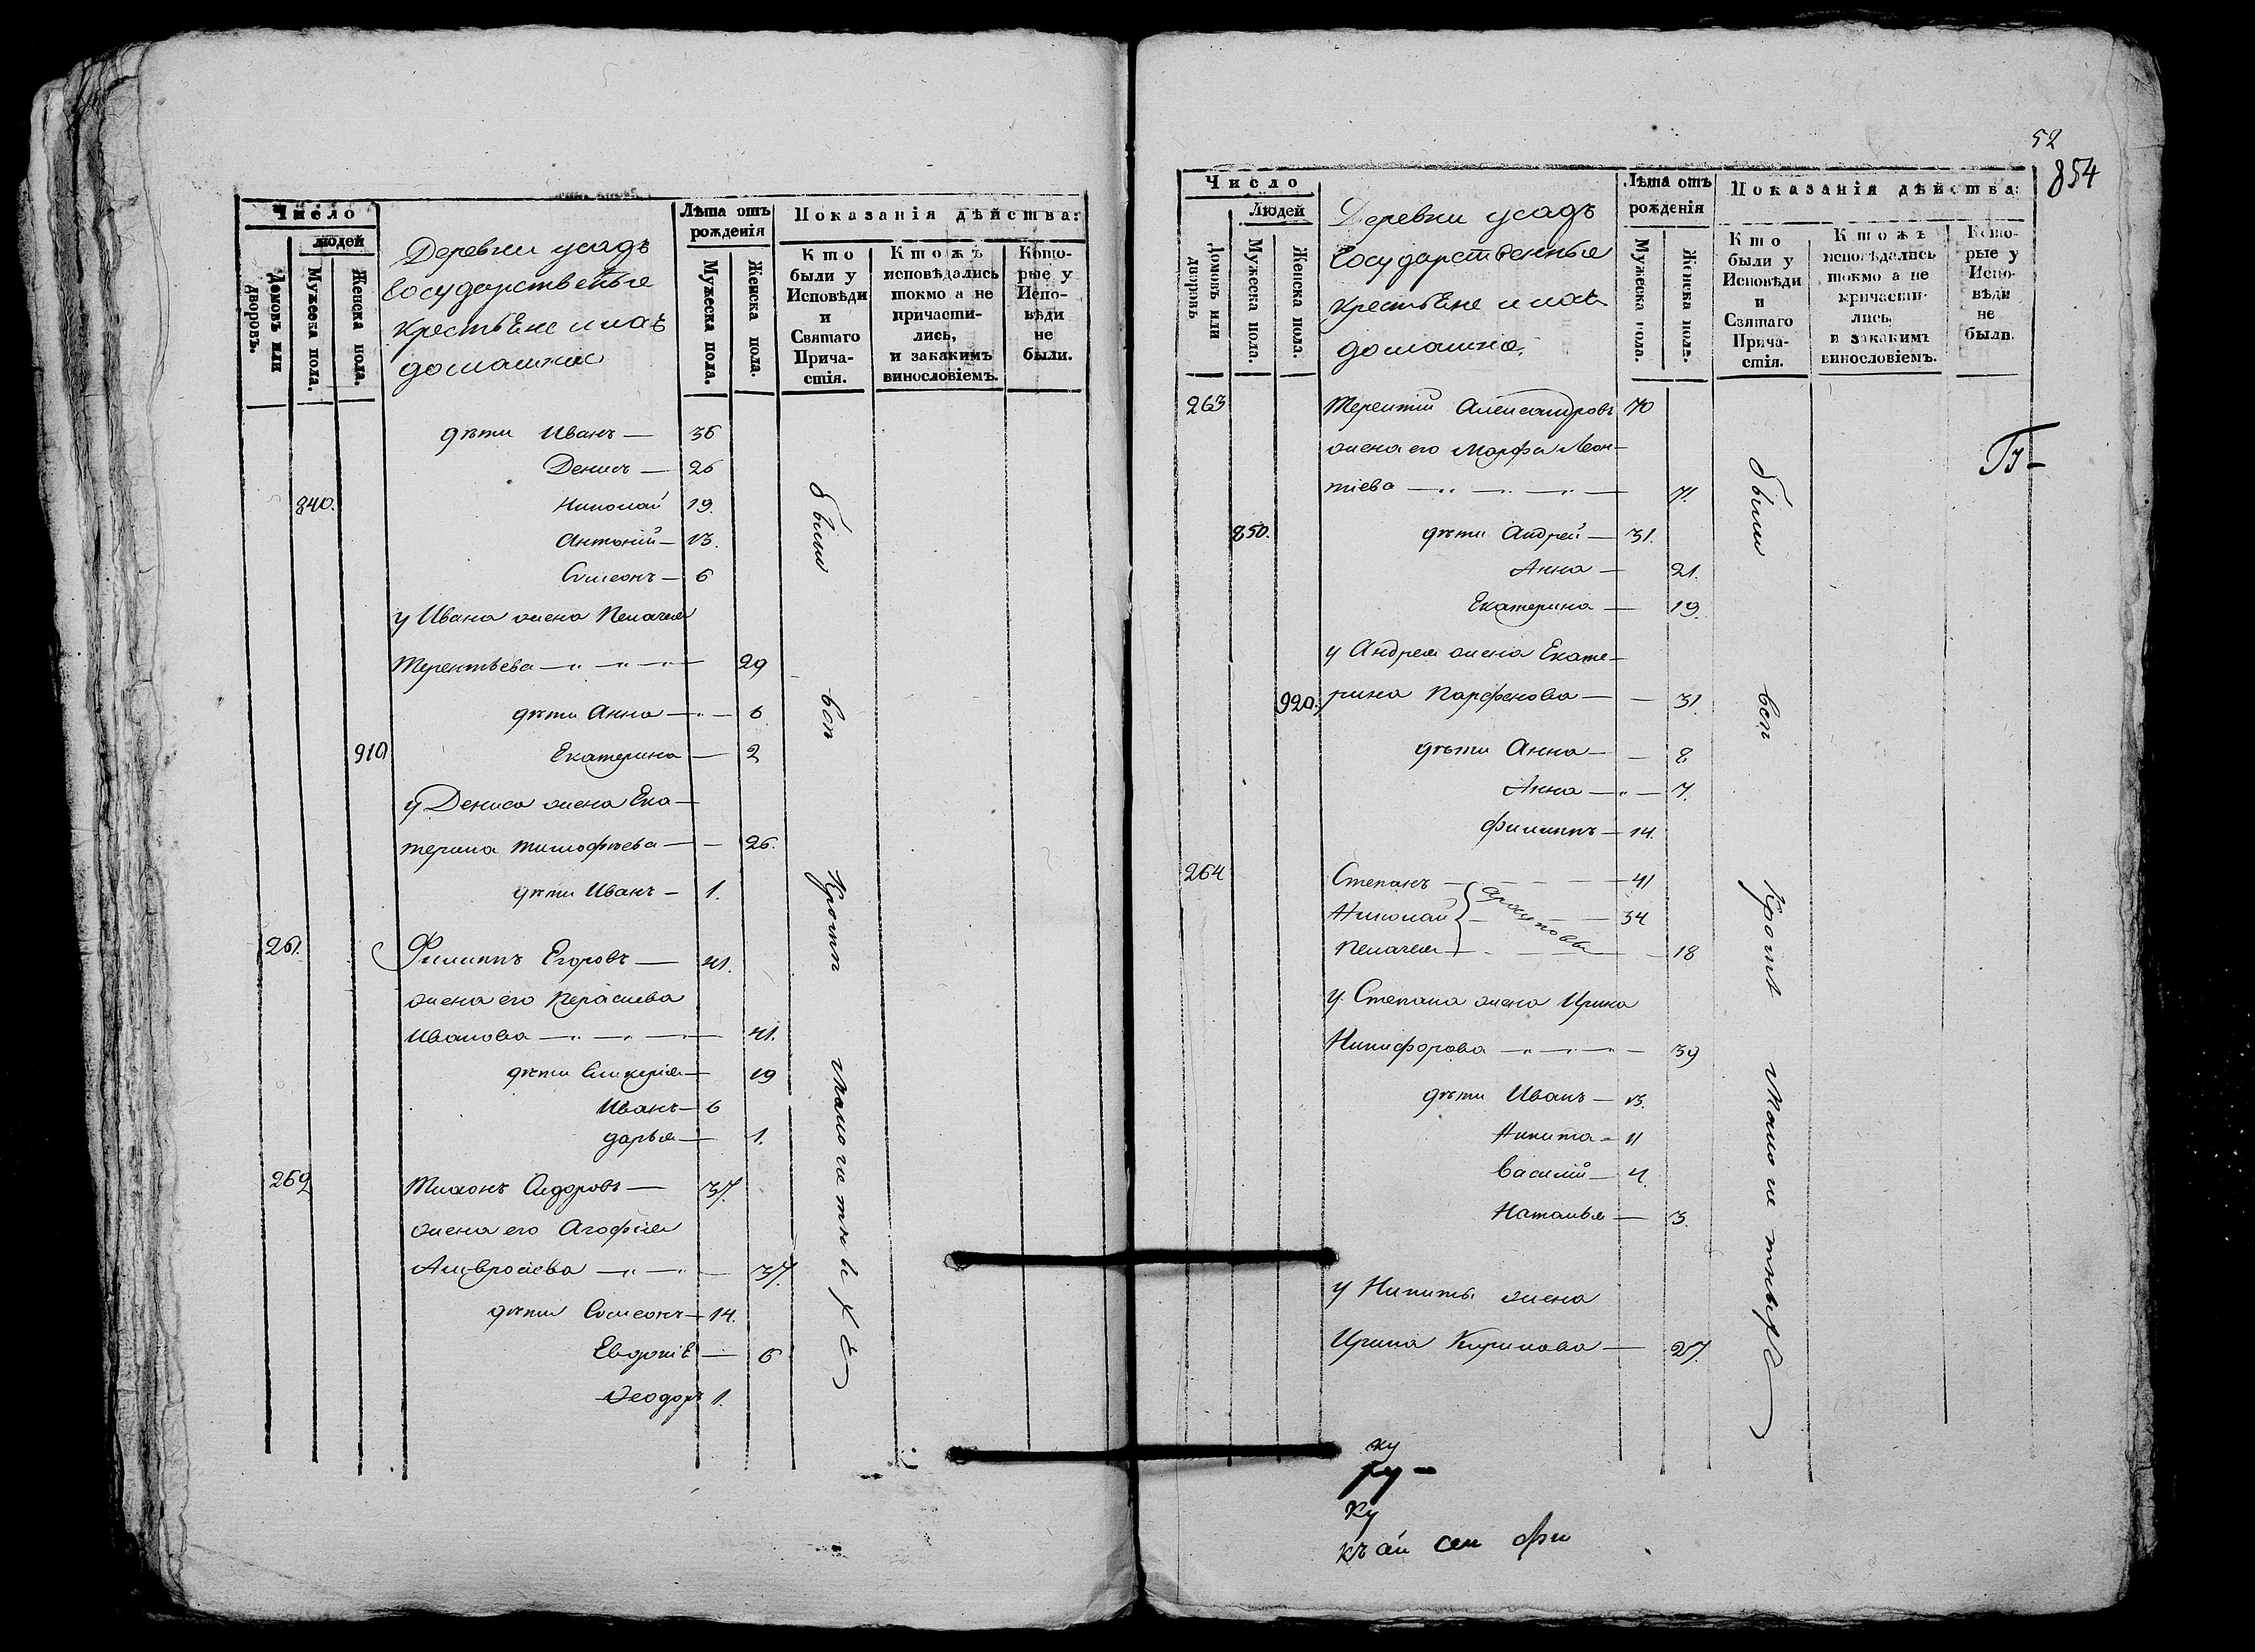 Число
людей
Домовъ или дворовъ.
Мужеска пола.
Женска пола.
Деревни усадъ
Государственные
крестьЕне и ихъ
домашнии
Лѣта отъ рожденія
Мужеска пола.
Женска пола.
Показанія дѣйства:
Кто были у Исповѣди и Святаго Прича-стія.
Ктожъ исповѣдались токмо а не причасти-лись, и закакимъ винословіемъ.
Кото-рые у Испо-вѣди не были.
дѣти Иванъ — 36
Денисъ — 26
840. Николай 19.
Антоній — 13.
Симеонъ — 6
у Ивана жена Пелагея
Терентьева — 29
дѣти Анна — 6.
910 Екатерина — 2
у Дениса жена Ека-
терина Тимофѣева — 26.
дѣти Иванъ — 1.
261. Филиппъ Егоровъ — 41.
жена его Герасиева
Иванова — 41.
дѣти Гликерія — 19
Иванъ — 6
дарья — 1.
262 Тихонъ Сидоровъ — 37.
жена его Агофия
Амвросиева — 37.
дѣти Симеонъ — 14.
ЕвдокиЕ — 6
Ѳеодоръ 1.
были всѣ Кромѣ малолетныхъ
52
854
Число
Людей
Домовъ или дворовъ
Мужеска пола.
Женска пола.
Деревни усадъ
Государственные
крестьЕне и ихъ
домашнио.
Лѣта отъ рожденія
Мужеска пола.
Женска пола.
Показанія дѣйства:
Кто были у Исповѣди и Святаго Прича-стія.
Ктожъ исповѣдались токмо а не причасти-лись, и закакимъ винословіемъ.
Кото-рые у Испо-вѣди не были.
263 Терентій Александровъ 70
жена его Марфа Леон-
тиева — 71.
850. дѣти Андрей — 31.
Анна — 21.
Екатерина — 19.
у Андрея жена Екате-
920. рина Парфенова — 31.
дѣти Анна — 8
Анна — 7.
Филиппъ — 14.
264 Степанъ — 41
Николай — 34
Архиповы
Пелагея — 18
у Степана жена Ирина
Никифорова — 39
дѣти Иванъ — 13.
Никита — 11
Василій — 4.
Наталья — 3.
у Никиты жена
Ирина Кирилова — 27.
были всѣ Кромѣ малолетныхъ
ку
ру —
Ку